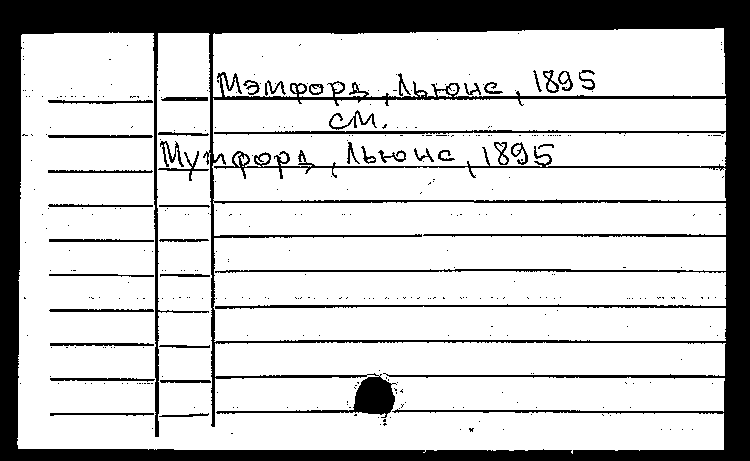 Мэмфорд, Льюис, 1895
см.
Мумфорд, Льюис, 1895